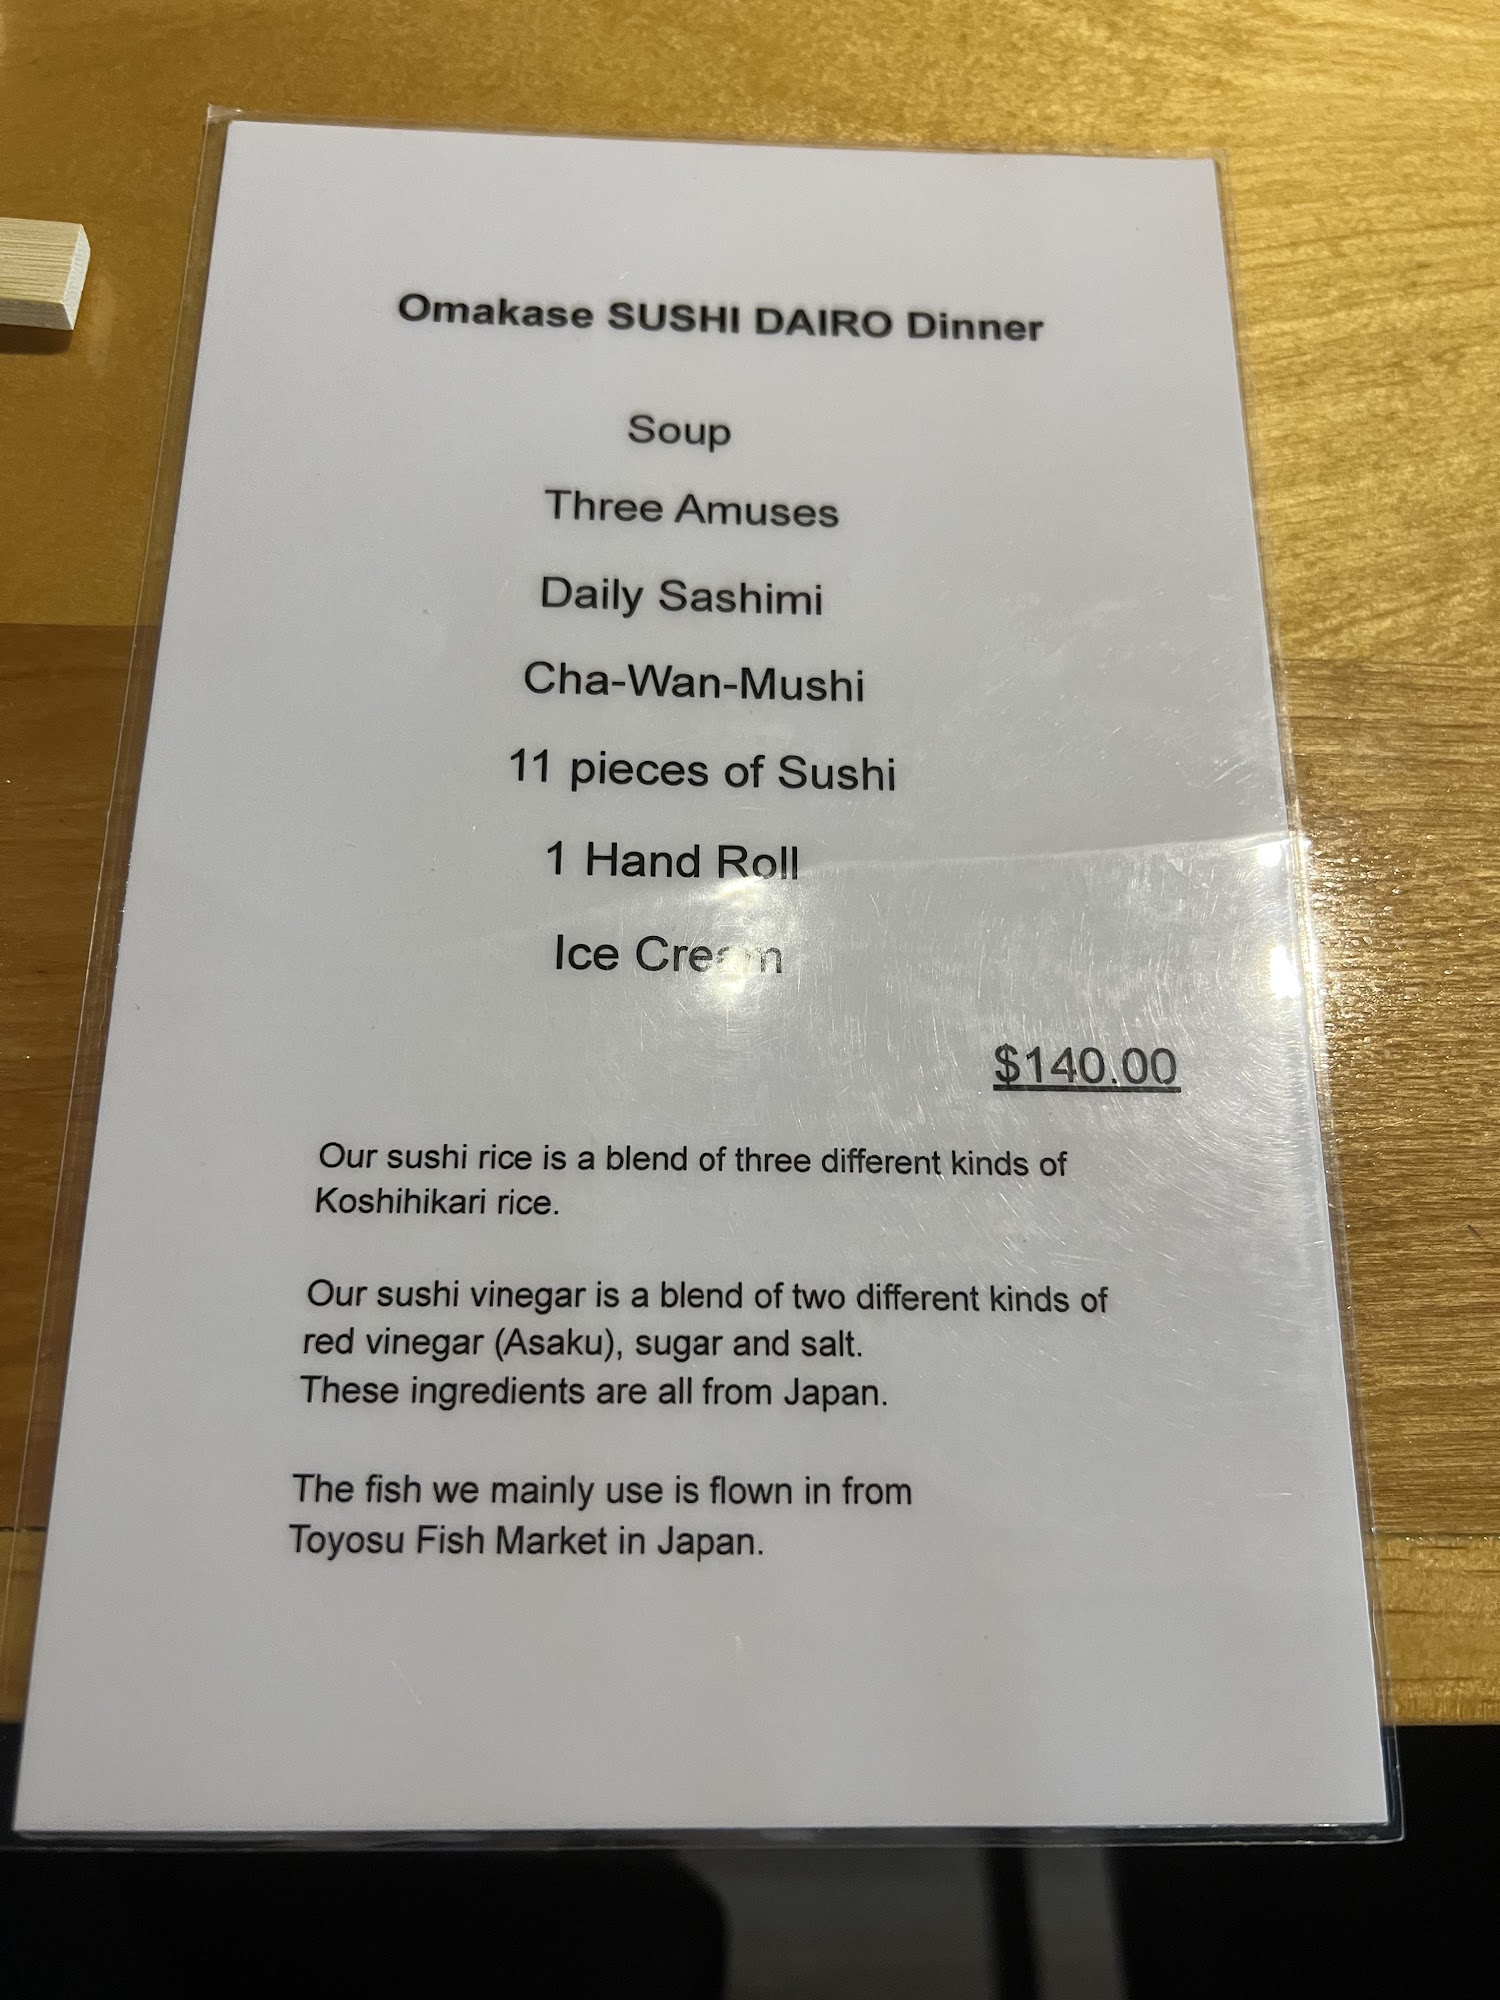 Omakase SUSHI DAIRO Dinner
Soup
Three Amuses
Daily Sashimi
Cha-Wan-Mushi
11 pieces of Sushi
1 Hand Roll
Ice Cream
$140.00
Our sushi rice is a blend of three different kinds of
Koshihikari rice.
Our sushi vinegar is a blend of two different kinds of
red vinegar (Asaku), sugar and salt.
These ingredients are all from Japan.
The fish we mainly use is flown in from
Toyosu Fish Market in Japan.